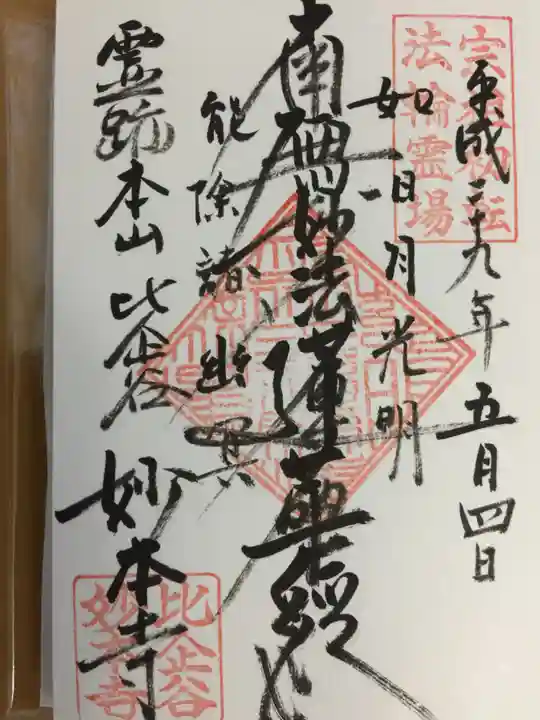 平成二十九年五月四日
如日月光明
南無妙法蓮華経
能除諸幽冥
霊跡本山 比企谷 妙本寺
宗祖初転
法輪霊場
比企谷
妙本寺